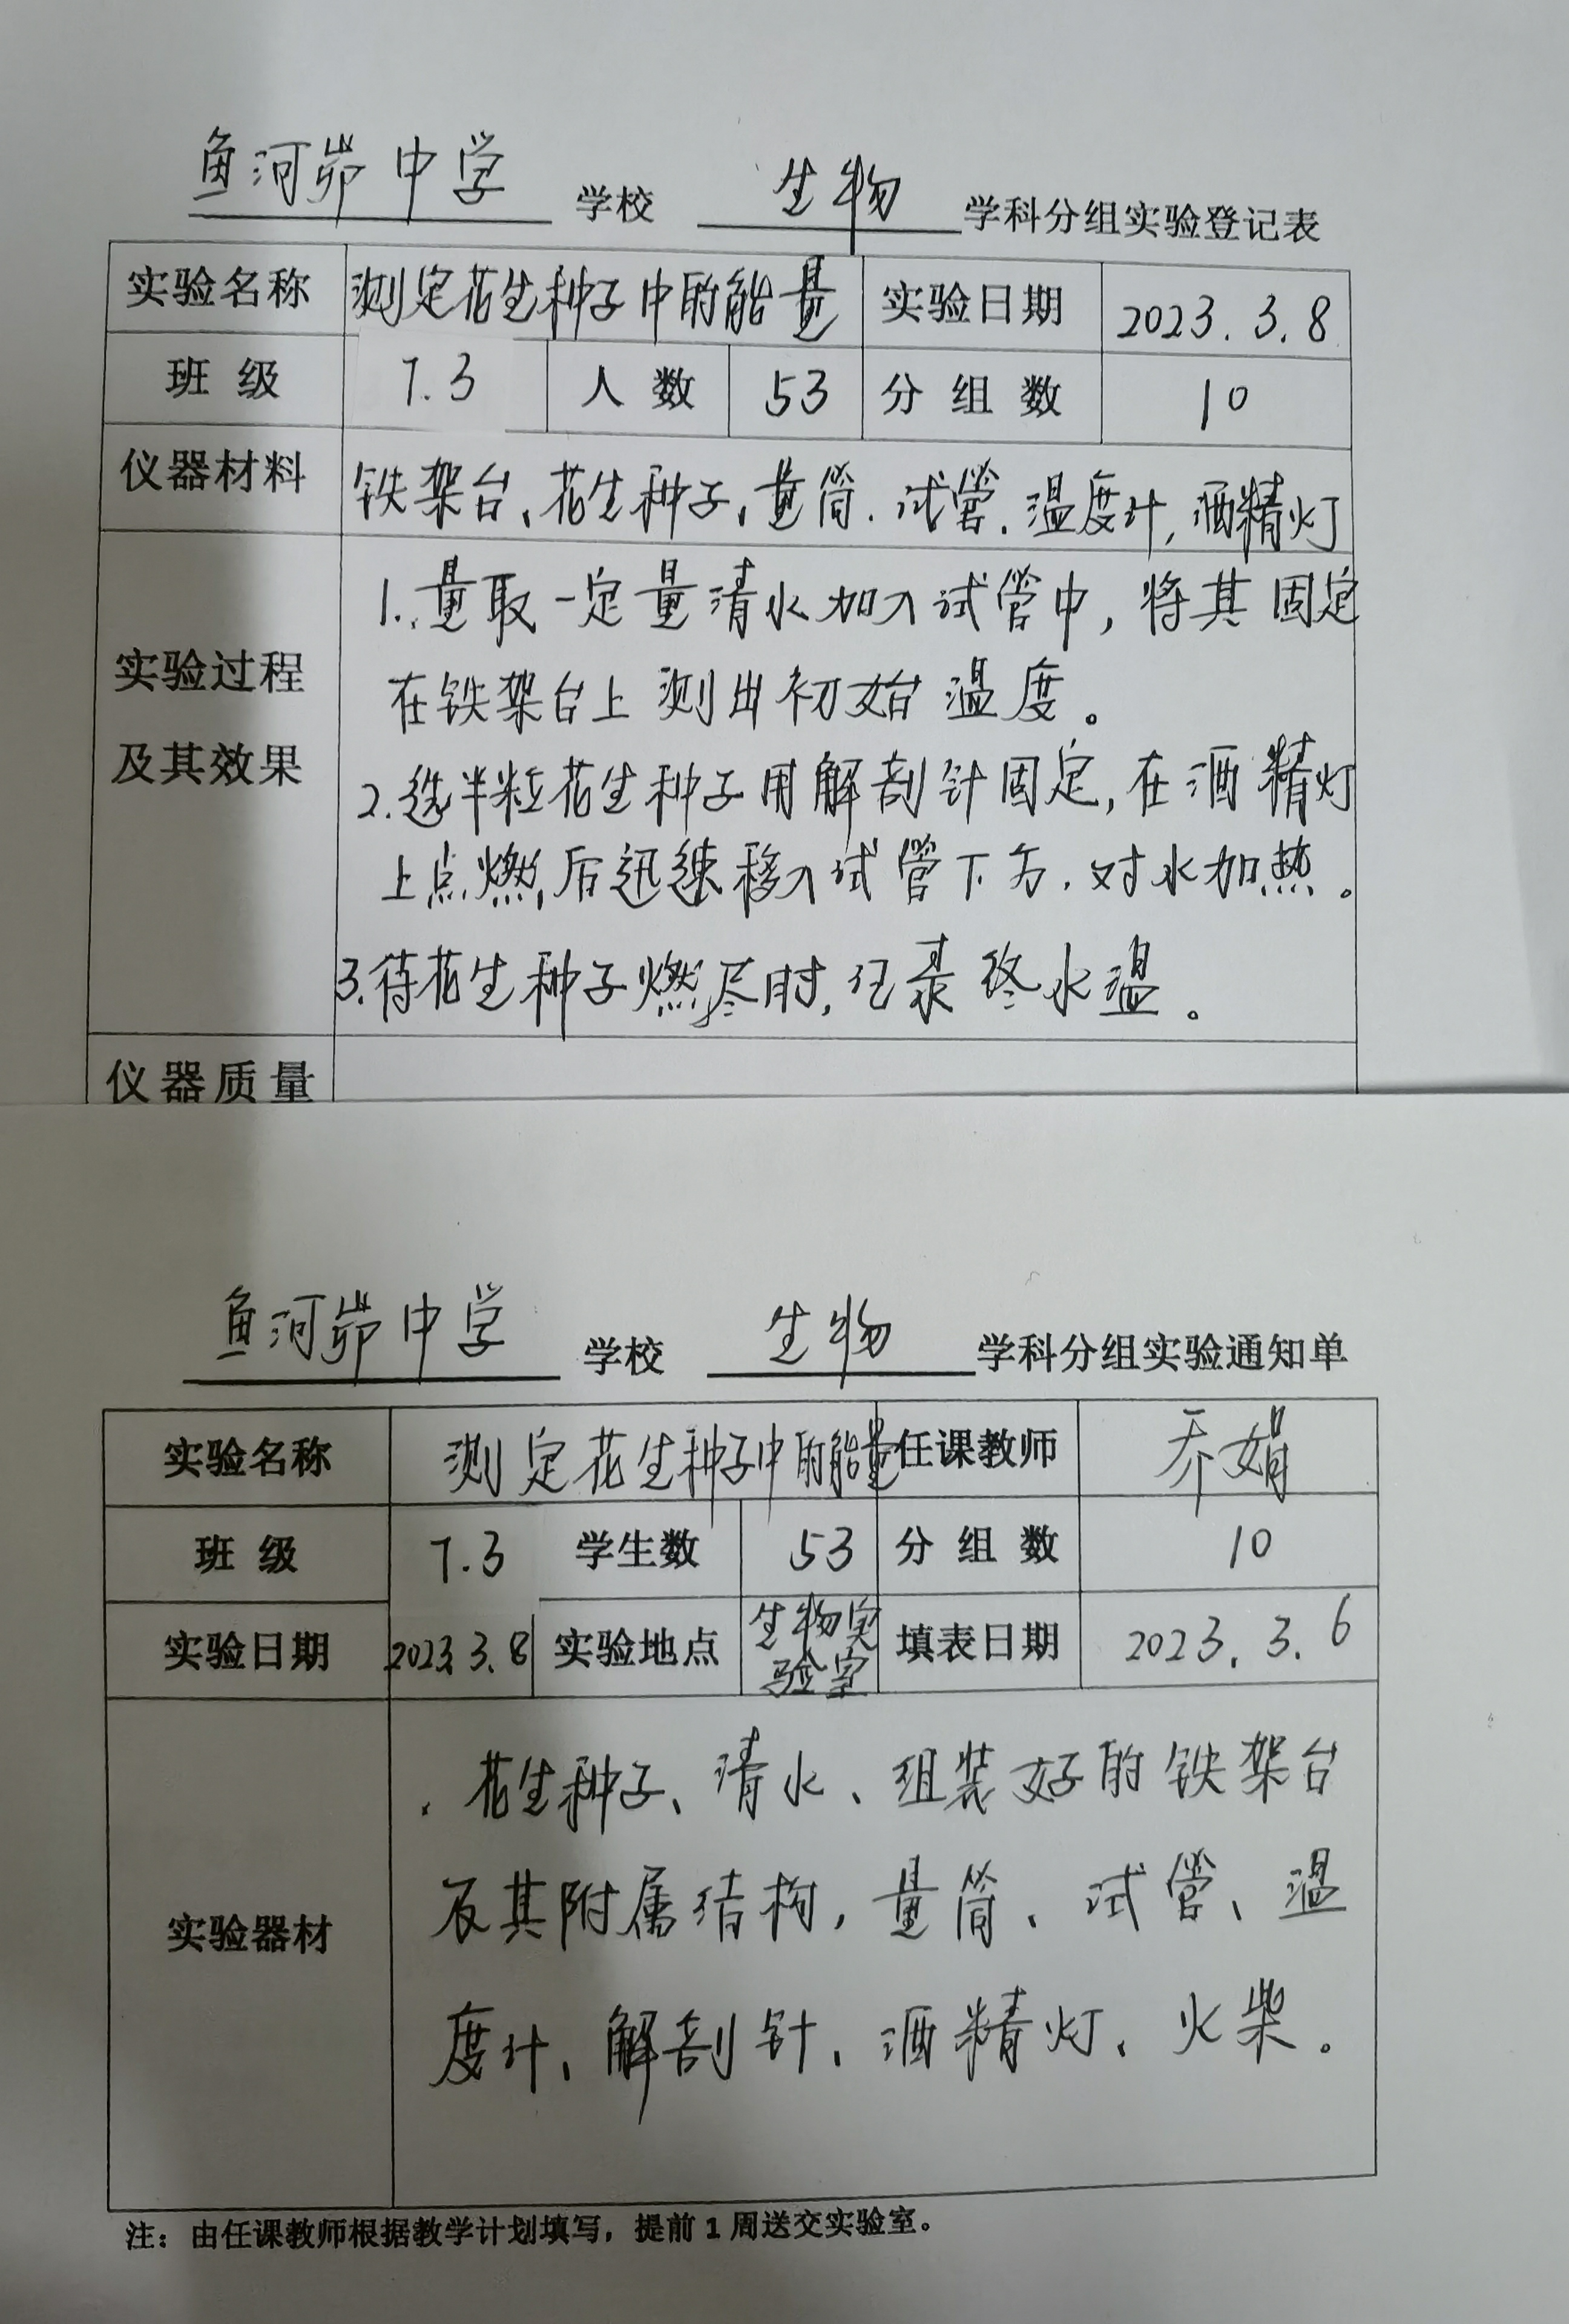 鱼河峁中学 学校 生物 学科分组实验登记表
实验名称 测定花生种子中的能量 实验日期 2023.3.8
班级 7.3 人数 53 分组数 10
仪器材料 铁架台、花生种子、量筒、试管、温度计,酒精灯
实验过程
及其效果
1.量取一定量清水加入试管中,将其固定
在铁架台上测出初始温度。
2.选半粒花生种子用解剖针固定,在酒精灯
上点燃,后迅速移入试管下方,对水加热。
3.待花生种子燃尽时,记录终水温。
仪器质量
鱼河峁中学 学校 生物 学科分组实验通知单
实验名称 测定花生种子中的能量 任课教师 乔娟
班级 7.3 学生数 53 分组数 10
实验日期 2023.3.8 实验地点 生物实
验室 填表日期 2023.3.6
实验器材
花生种子、清水、组装好的铁架台
及其附属结构,量筒、试管、温
度计、解剖针、酒精灯、火柴。
注：由任课教师根据教学计划填写，提前1周送交实验室。